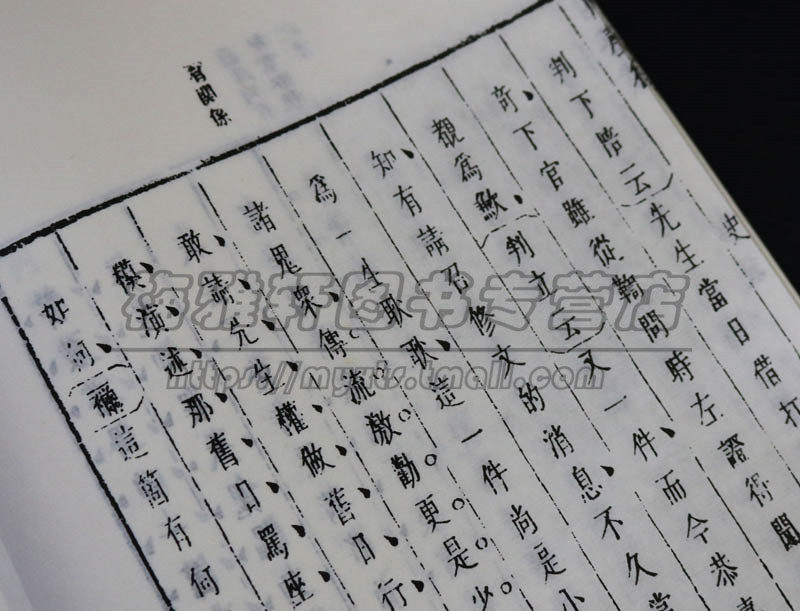 有關係
史
判下陪云先生當日借打
奇、下官雖從鞫問時左證得聞
覩為歉、判立云又一件、而今恭
知、有請召修文的消息、不久當
為一生耿耿、這一件尚是小
諸鬼衆、傳。流激勸。更。是。少。
敢、請、先、生、權、做、舊、日、行、
模、演、述、那、舊、日、罵、座
如何、禰這箇有何
海雅轩图书专营店
https://myyts.tmall.com